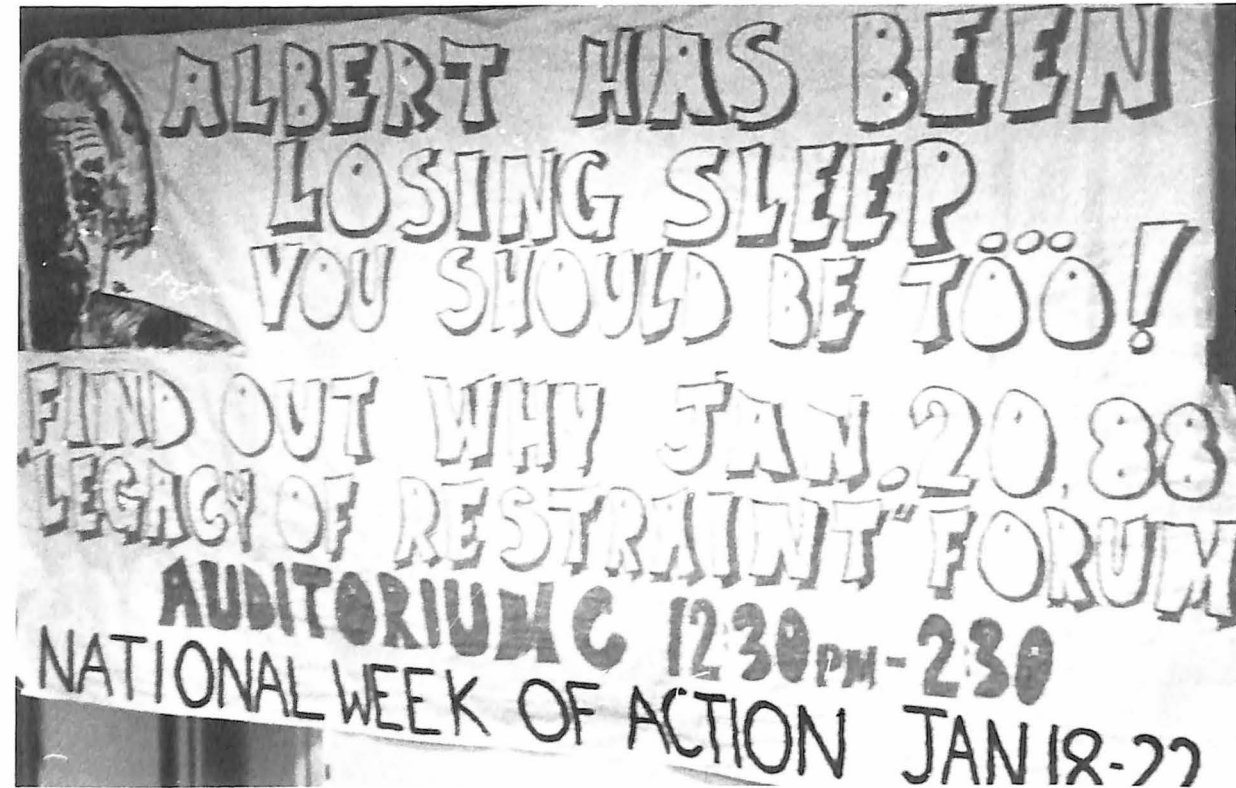 ALBERT HAS BEEN
LOSING SLEEP...
YOU SHOULD BE TOO!
FIND OUT WHY JAN. 20, 88
"LEGACY OF RESTRAINT" FORUM
AUDITORIUM C 12:30 PM - 2:30
NATIONAL WEEK OF ACTION JAN 18-22